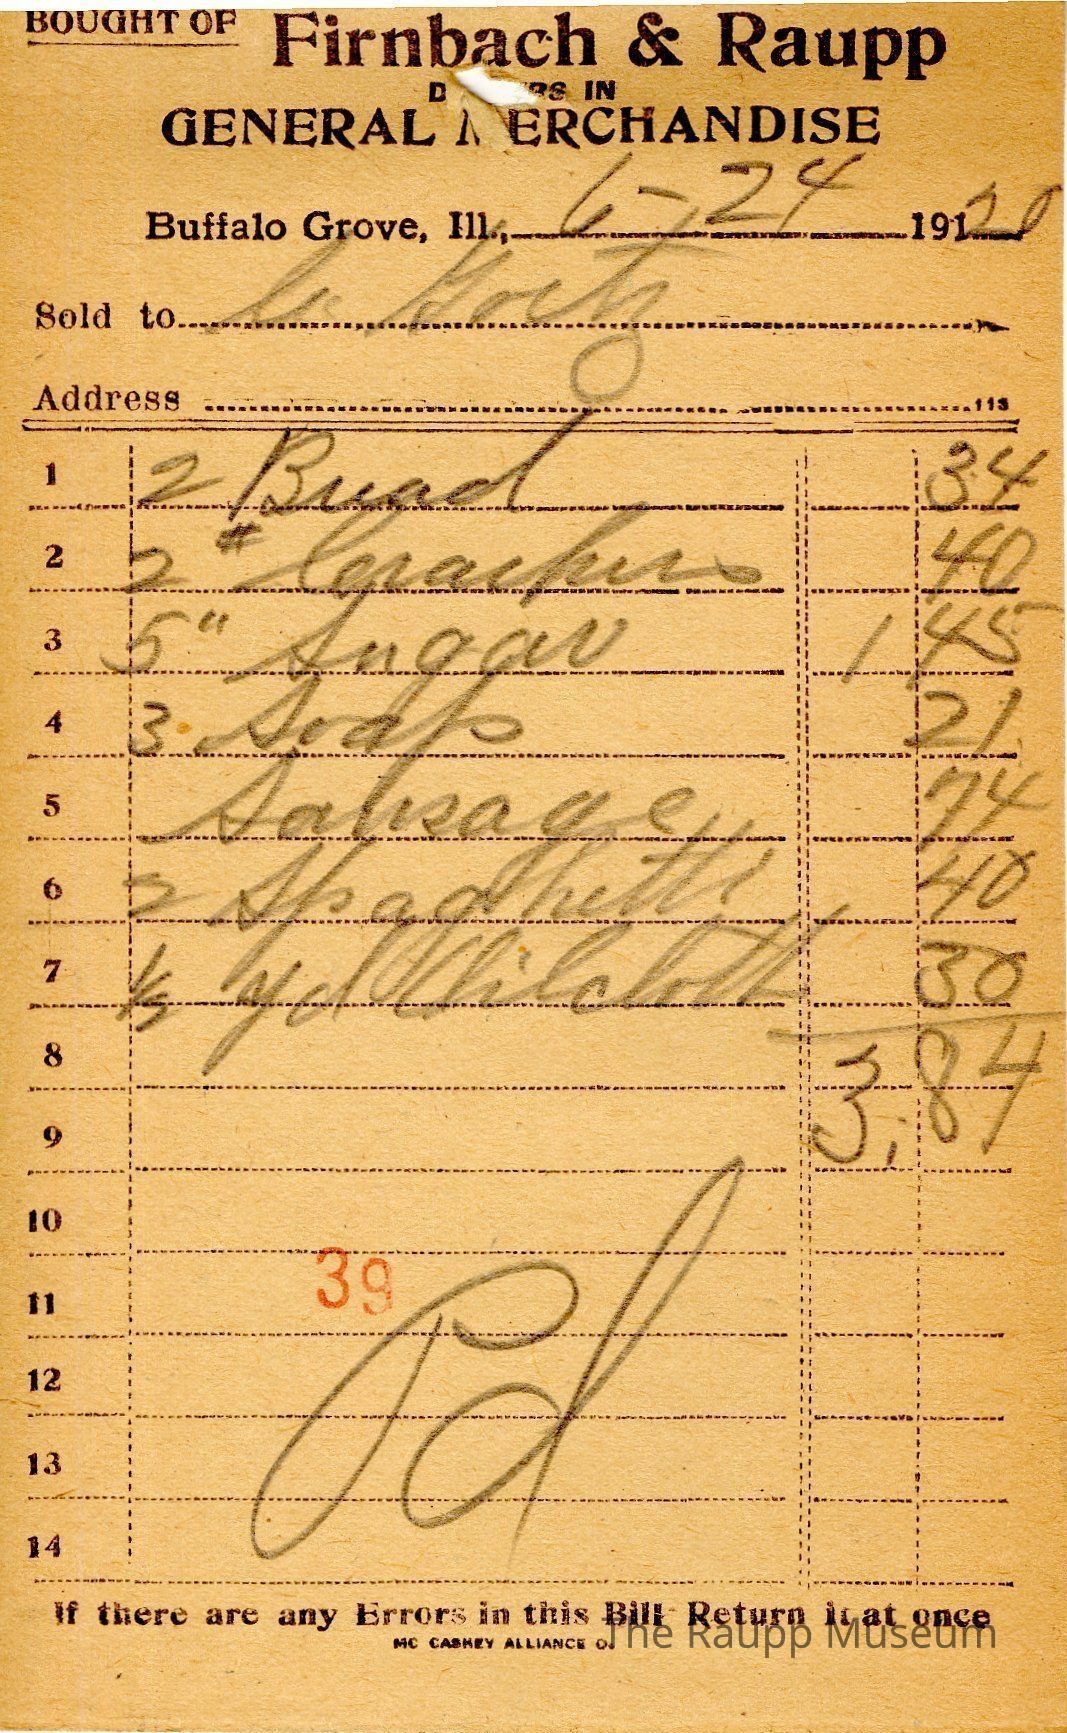 BOUGHT OF Firnbach & Raupp
D RS IN
GENERAL MERCHANDISE
Buffalo Grove, Ill., 6-24 1920
Sold to
Address 113
1 2 Bread 34
2 2 # Crackers 40
3 5 " Sugar 1 45
4 3 Soap 21
5 Sausage 74
6 2 Spaghetti 40
7 yd Oilcloth 30
8 3.84
9
10
39
11
12 Pd
13
14
If there are any Errors in this Bill Return it at once
MC CASKEY ALLIANCE O.
The Raupp Museum